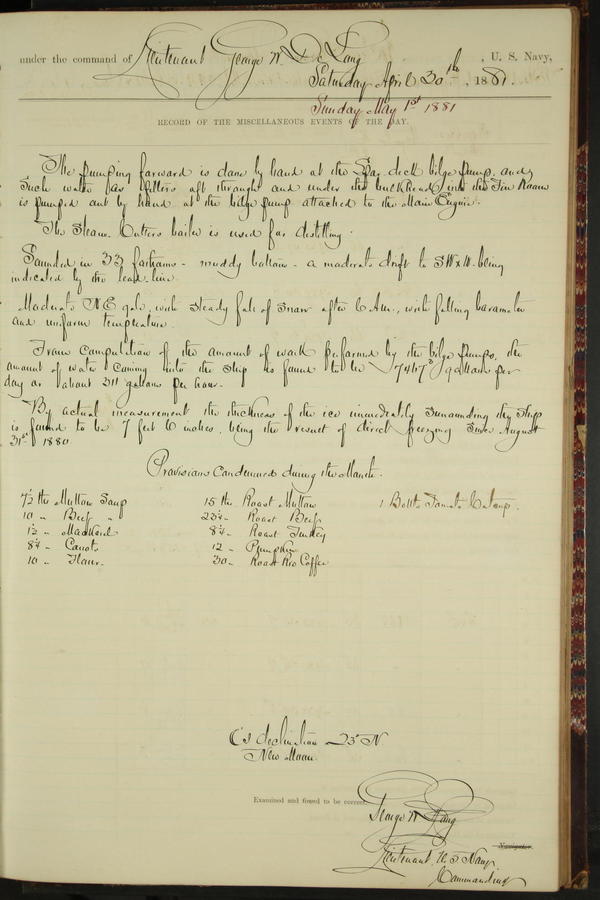 under the command of Lieutenant George W De Long , U. S. Navy,
Saturday April 30th , 1881.
Sunday May 1st 1881
RECORD OF THE MISCELLANEOUS EVENTS OF THE DAY.
The pumping forward is done by hand at the Spar deck bilge pump, and
Such water as filters aft through and under the bulkhead into the Fire Room
is pumped out by hand at the bilge pump attached to the Main Engine.
The Steam Cutters boiler is used for distilling.
Sounded in 33 fathoms - muddy bottom - a moderate drift to SW x W. being
indicated by the lead line.
Moderate NE gale, with Steady fall of Snow after 6 A.m., with falling barometer
and uniform temperature.
From Computation of the amount of work performed by the bilge pumps, the
amount of water coming into the Ship is found to be 7467 gallons per
day or about 311 gallons per hour.
By actual measurement the thickness of the ice immediately Surrounding the Ship
is found to be 7 feet 6 inches, being the result of direct freezing Since August
31st 1880
Provisions Condemned during the Month.
7½ lbs Mutton Soup 15 lbs Roast Mutton 1 Bottle Tomato Catsup.
10 " Beef " 23¼ " Roast Beef
1½ " Mackerel 8¼ " Roast Turkey
8¼ " Carrots 12 " Pumpkin
10 " Flour 30 " Roast Rio Coffee
declination 23° N
New Moon
Examined and found to be correct.
George W De Long
Navigator.
Lieutenant U.S Navy
Commanding